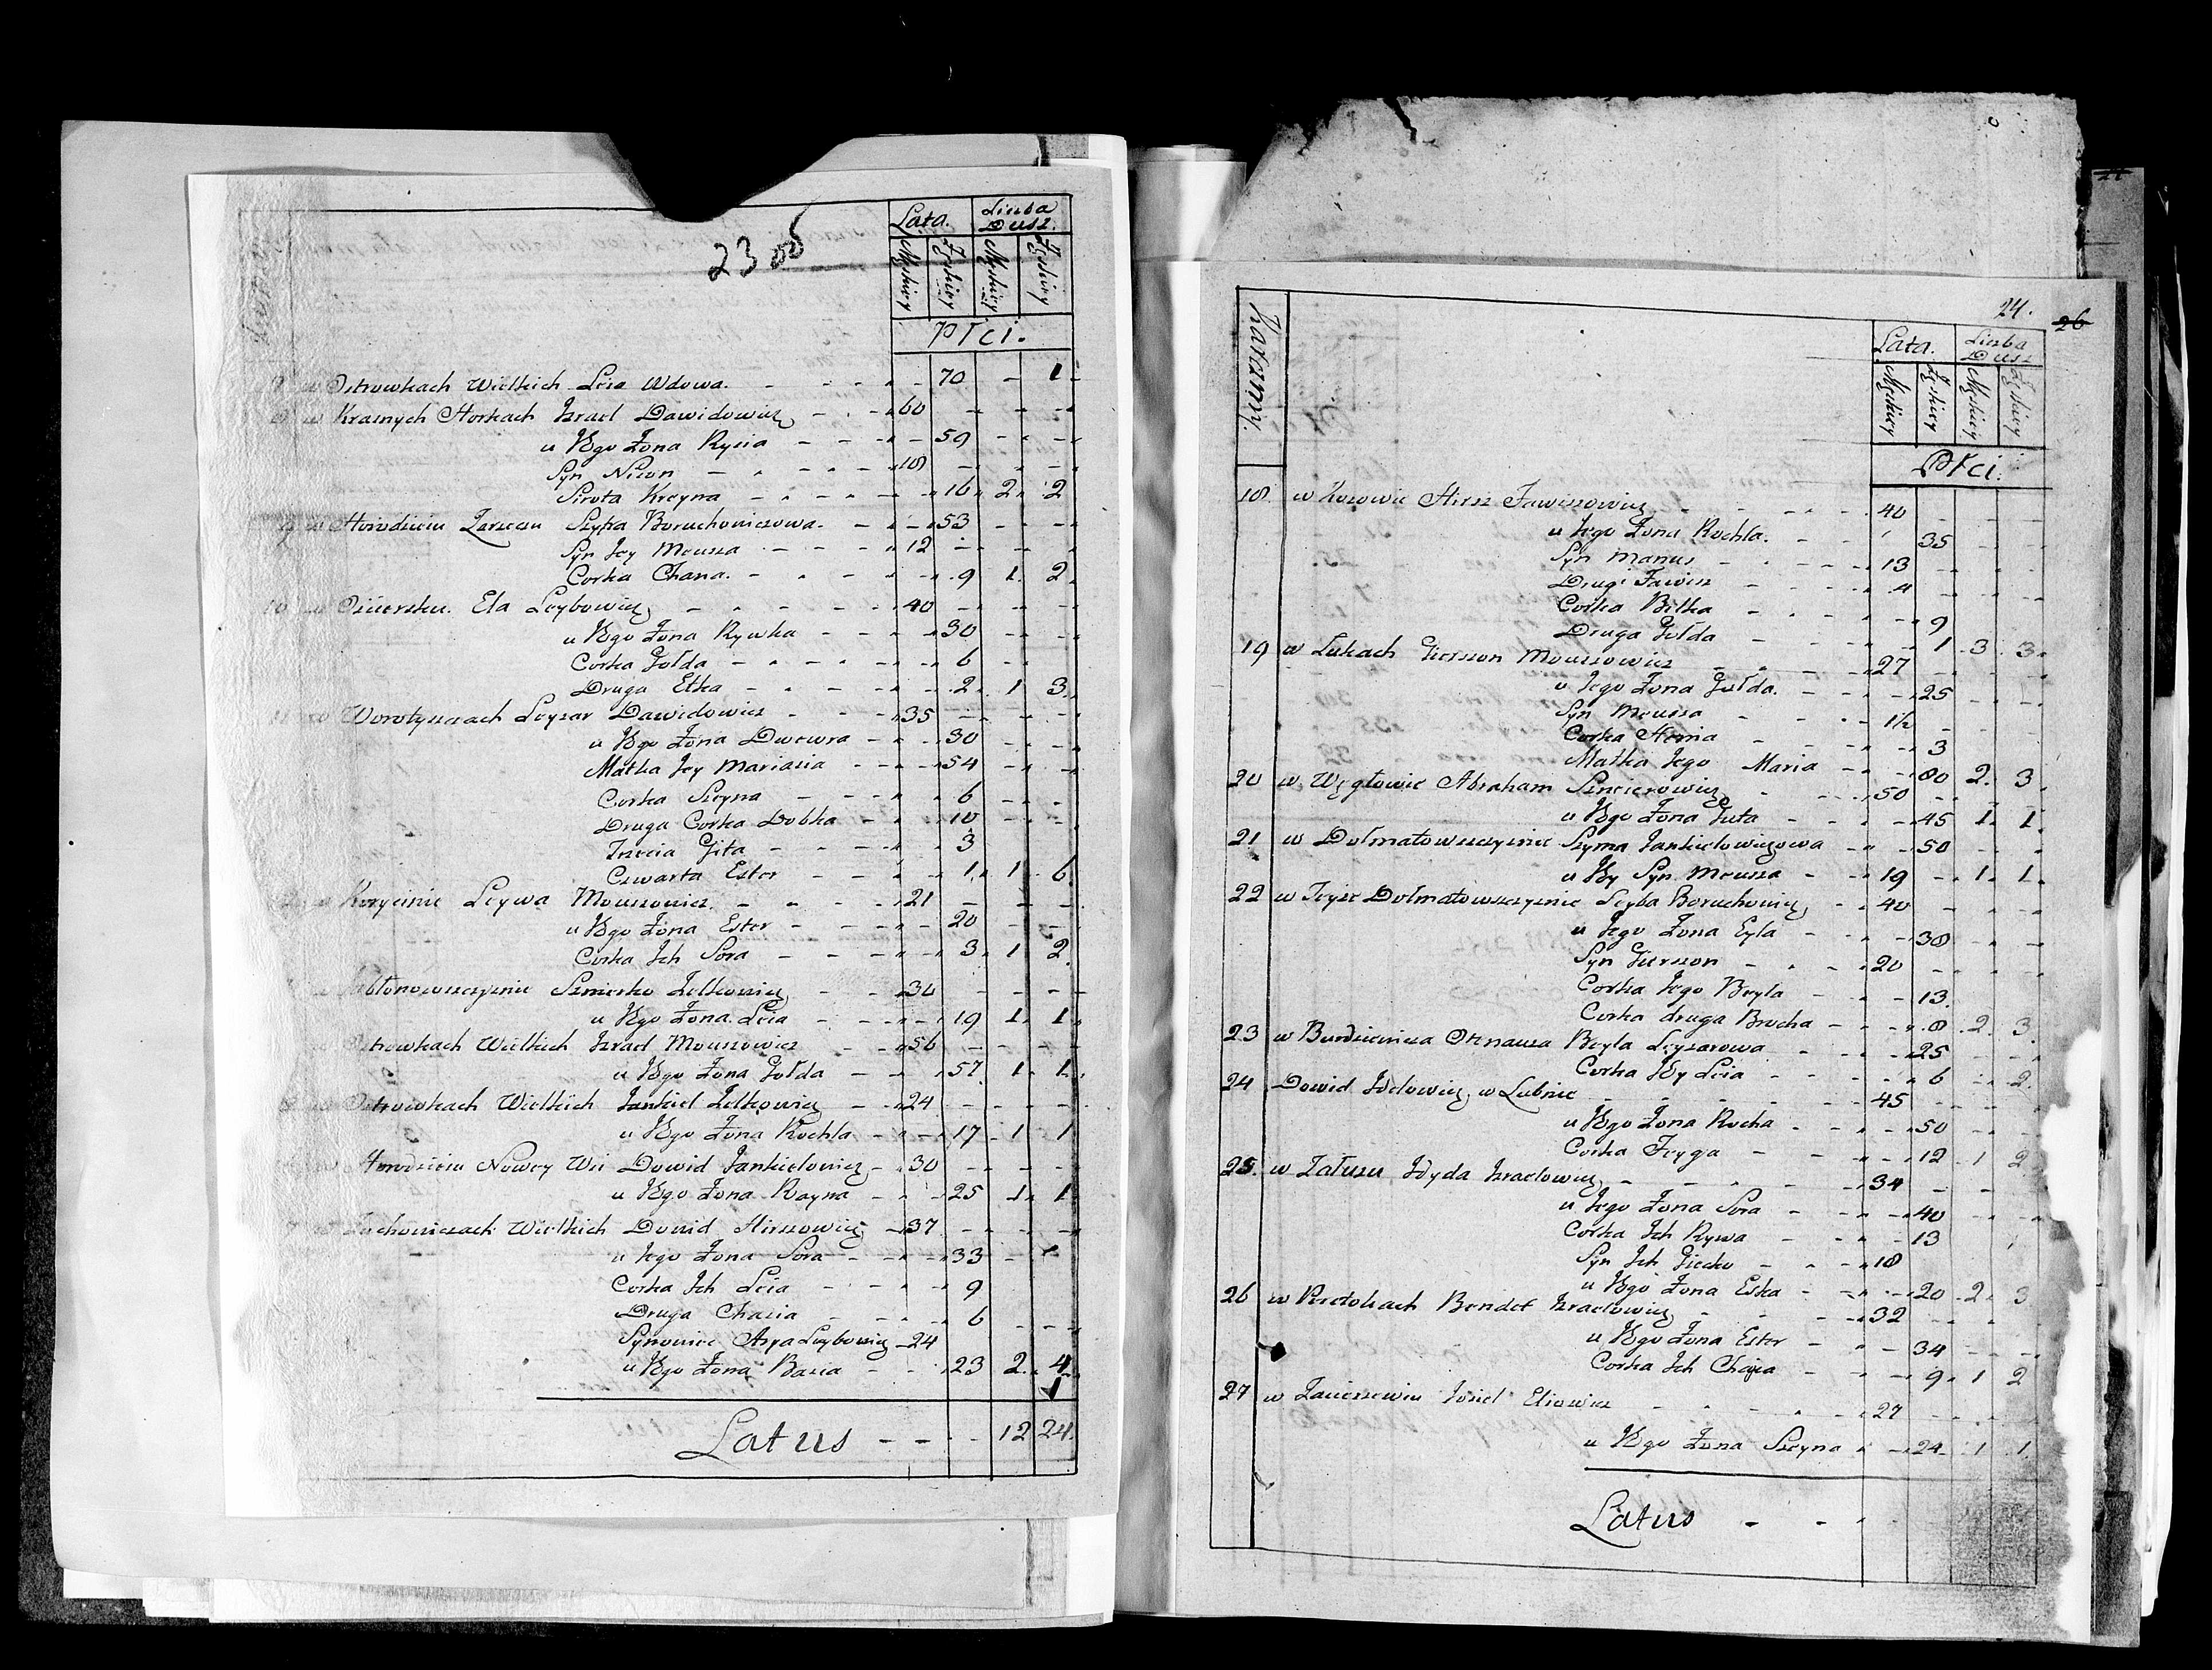 23 об
Lata. Liczba Dusz.
Męskiey Żeńskiey Męskiey Żeńskiey
Płci.
w Ostrowkach Wielkich Leia Wdowa. - - - 70 - 1
w Krasnych Horkach Izrael Dawidowicz - - 60 - - -
u Iego Żona Rysia - - - 59 - -
Syn Nison - - - 18 - - -
Sirota Kreyna - - - 16 2 2
w Horodzieiu Szyfra Boruchowiczowa - - 53 - -
Syn Iey Mousza - - - 12 - - -
Corka Chana. - - - 9 1. 2
10 Ela Leybowicz - - - 40 - - -
u Iego Żona Rywka - - - 30 - -
Corka Gołda - - - 6 - -
Druga Etka - - - 2 1 3
Leyzar Dawidowicz - - - 35 - - -
u Iego Żona Dwewra - - 30 - -
Matka Iey Mariasia - - 54 - -
Corka Szeyna - - - 6 - -
Druga Corka Dobka - - 10 - -
Trzecia Gita - - - 3
Czwarta Ester - - - 1 1 6
Leywa Mouszowicz. - - - 21 - - -
u Iego Żona Ester - - - 20 - -
Corka Ich Sora - - - 3 1 2
Szmerko Zelkowicz - - 30 - - -
u Iego Żona Leia - - - 19 1 1
Ostrowkach Wielkich Izrael Mouszowicz - - 56 - - -
u Iego Żona Gołda - - 57 1 1
Ostrowkach Wielkich Jankiel Zelkowicz - - 24 - - -
u Iego Żona Rochla - - 17 1 1
Horodzieiu Nowey Wsi Dowid Jankielowicz - 30 - - -
u Iego Żona Rayna - - 25 1 1
Wielkich Dowid Hirszowicz - 37 - - -
u Iego Żona Sora - - - 33 - -
Corka Ich Leia - - - 9
Druga Chasia - - - 6
Synowiec Leybowicz - 24
u Iego Żona Basia - - 23 2 4
Latus - - - 12 24.
24.
26
Katamy.
Lata. Liczba Dusz
Męskiey Żeńskiey Męskiey Żeńskiey
Płci.
18. w Kozowie Hirsz Fawiszowicz - - - 40 - - -
u Iego Żona Rochla. - - 35 - -
Syn Manus - - - 13 - -
Drugi Fawisz - - - 4
Corka Bilka - - - 9
Druga Gołda - - - 1 3 3
19 w Lukach Gierszon Mouszowicz - - - 27 - - -
u Iego Żona Gołda. - - 25 - -
Syn Mousza - - - 1½
Corka - - - 3
Matka Iego Maria - - 80 2. 3
20 w Węgłowie Abraham - - 50 - - -
u Iego Żona Guta - - 45 1 1
21 w Dolmatowszczyznie Szyma Jankielowiczowa - - 50 - -
u Iey Syn Mousza - - 19 - 1 1
22 w Teyże Dolmatowszczyznie Leyba Boruchowicz - 40 - - -
u Iego Żona Eyla - - - 38 - -
Syn Gierszon - - - 20 - -
Corka Iego Beyla - - - 13.
Corka druga Brocha - - 8 2 3
23 w Beyla Leyzarowa - - 25 - -
Corka Iey Leia - - - 6 - 2.
24 Dowid w Lubnie - - - 45 - -
u Iego Żona Rocha - - 50 - -
Corka Feyga - - - 12 1 2
25. w Zatuszu Hyda Izraelowicz - - - 34 - -
u Iego Żona Sora - - 40 - -
Corka Ich Rywa - - - 13
Syn Ich - - - 18
u Iego Żona Eska - - 20 2 3
26 w Peretokach Bendet Izraelowicz - - - 32 - -
u Iego Żona Ester - - 34 - -
Corka Ich Chaja - - - 9 1 2
27 w Josiel Eliowicz - - - 27 - -
u Iego Żona Szeyna - - 24 1 1.
Latus - - -